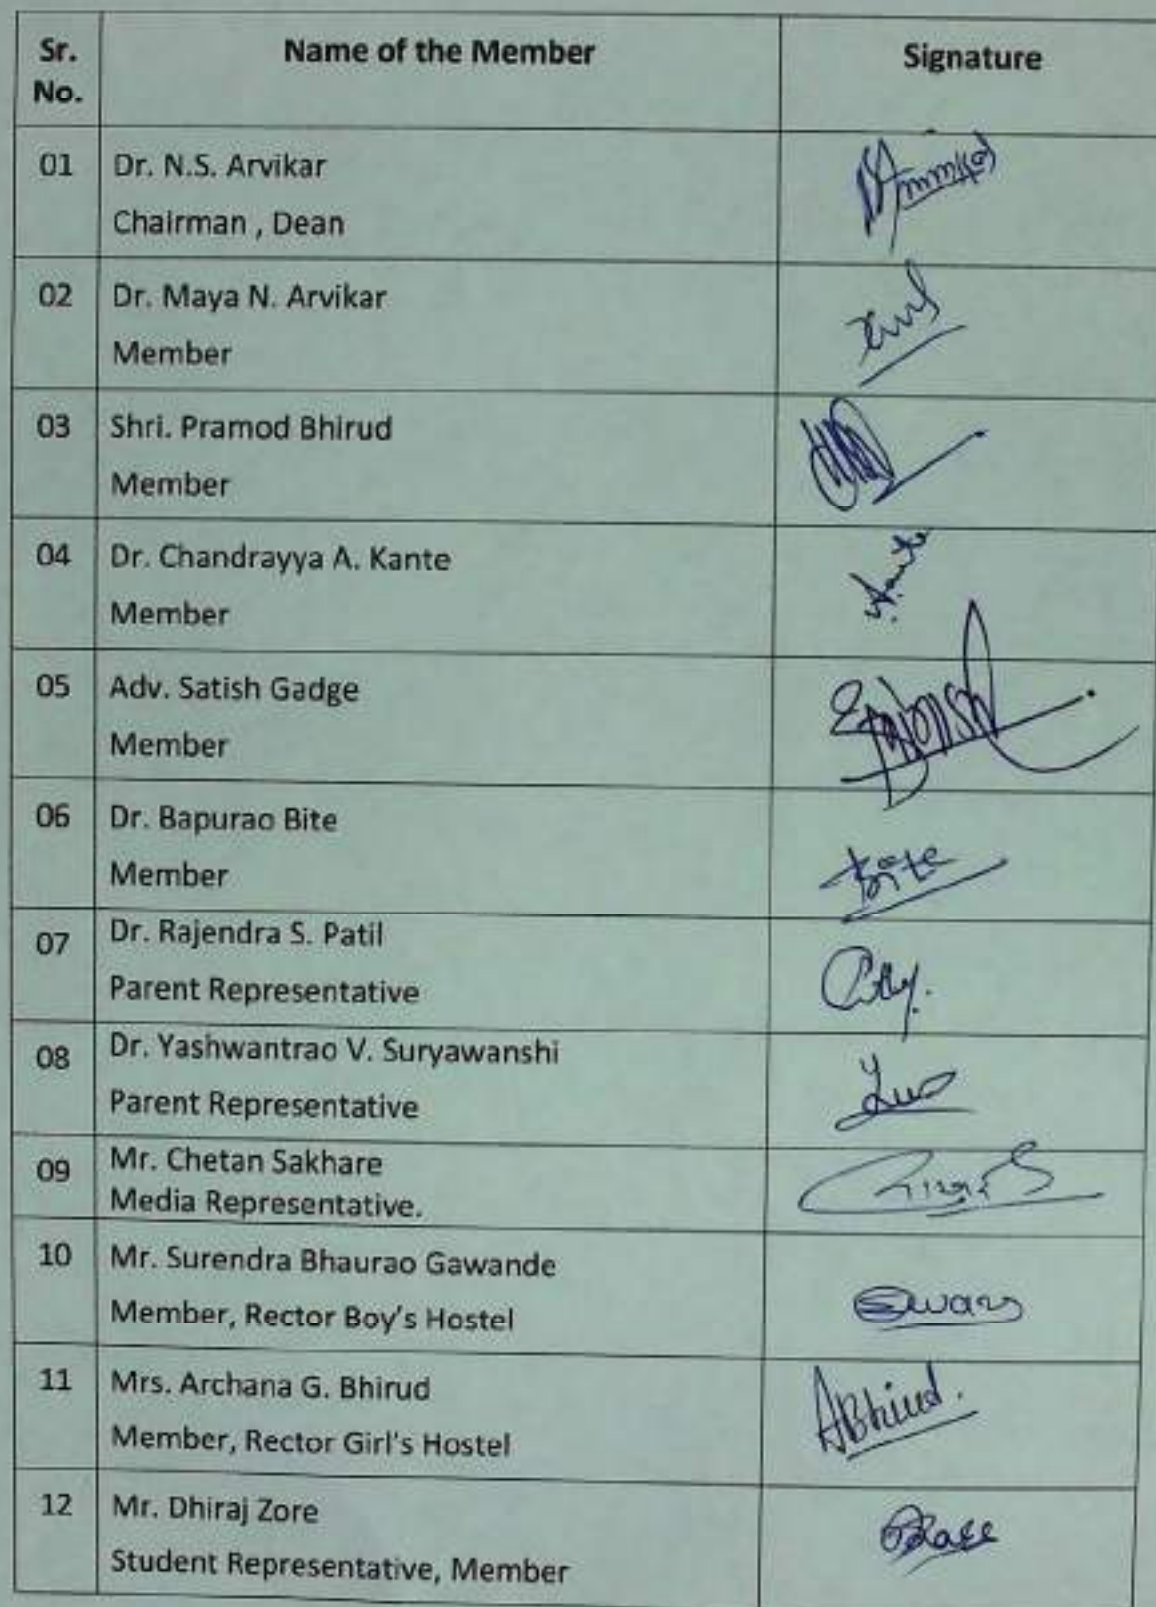 Sr. No.
Name of the Member
Signature
01
Dr. N.S. Arvikar
Chairman , Dean
02
Dr. Maya N. Arvikar
Member
03
Shri. Pramod Bhirud
Member
04
Dr. Chandrayya A. Kante
Member
05
Adv. Satish Gadge
Member
06
Dr. Bapurao Bite
Member
Bite
07
Dr. Rajendra S. Patil
Parent Representative
08
Dr. Yashwantrao V. Suryawanshi
Parent Representative
09
Mr. Chetan Sakhare
Media Representative.
10
Mr. Surendra Bhaurao Gawande
Member, Rector Boy's Hostel
11
Mrs. Archana G. Bhirud
Member, Rector Girl's Hostel
ABhirud.
12
Mr. Dhiraj Zore
Student Representative, Member